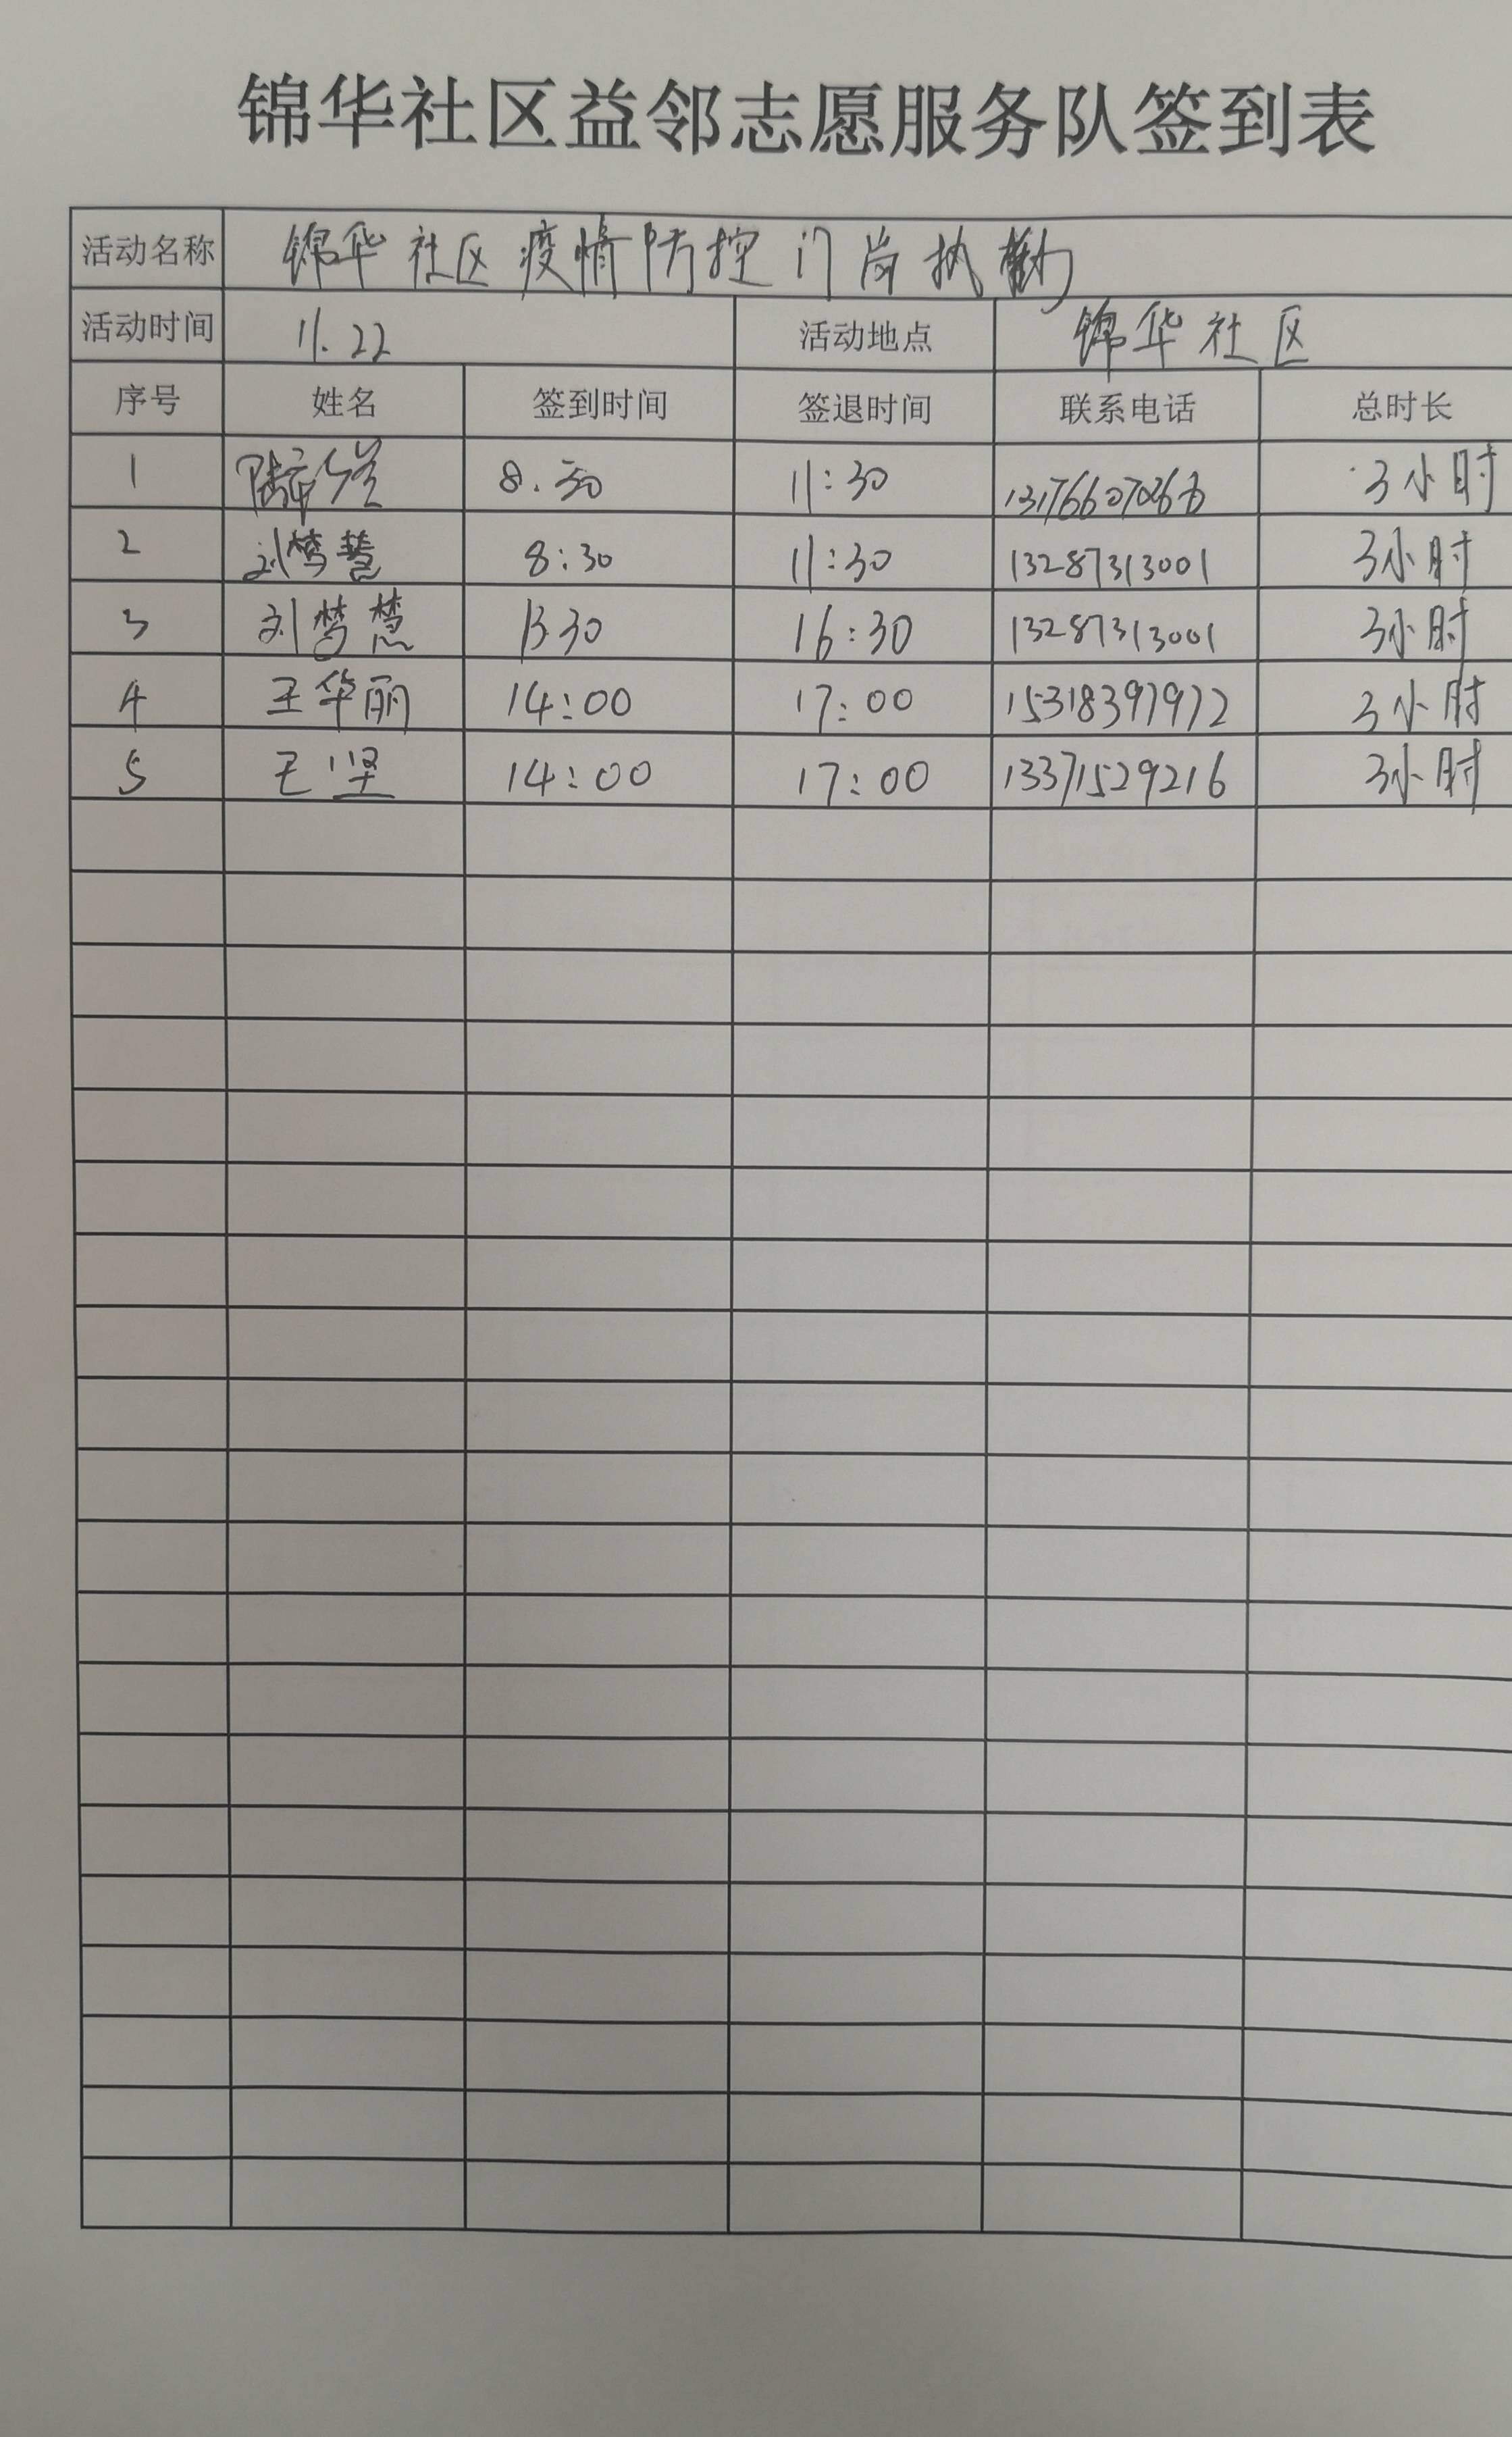 锦华社区益邻志愿服务队签到表
活动名称 锦华社区疫情防控门岗执勤
活动时间 11.22 活动地点 锦华社区
序号 姓名 签到时间 签退时间 联系电话 总时长
1 8.30 11:30 3小时
2 刘梦慧 8:30 11:30 13287313001 3小时
3 刘梦慧 13.30 16:30 13287313001 3小时
4 王华丽 14:00 17:00 15318397972 3小时
5 王坚 14:00 17:00 13371529216 3小时